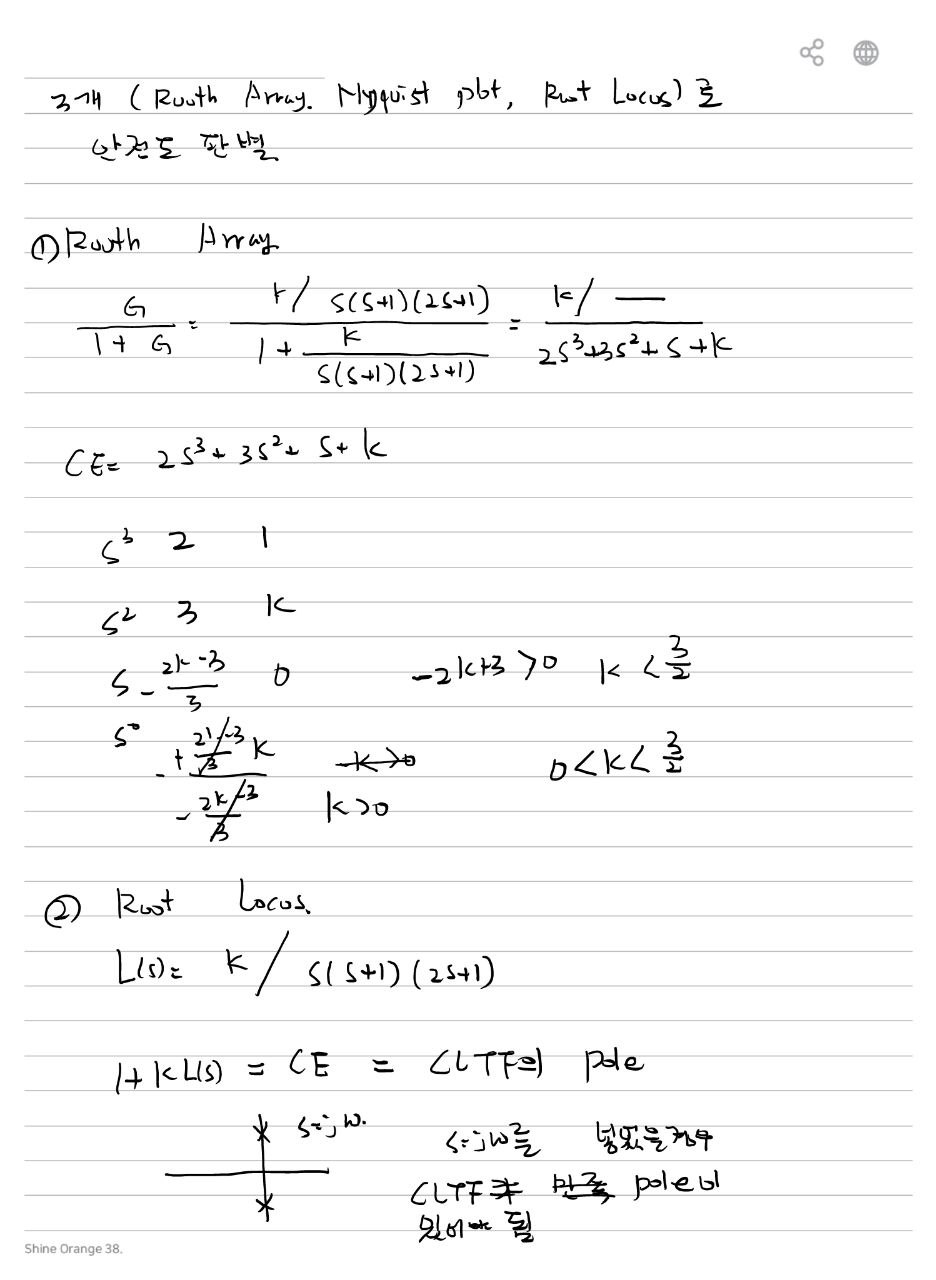 3개 (Routh Array. Nyquist plot, Root Locus)로
안전도 판별
① Routh Array
G / (1 + G) = (k / s(s+1)(2s+1)) / (1 + k / (s(s+1)(2s+1))) = (k / —) / (2s³+3s²+s+k)
CE= 2s³+3s²+s+k
s³ 2 1
s² 3 k
s -(2k-3)/3 0 -2k+3 >0 k < 3/2
s⁰ -(+(2k-3)/3 k) / (-(2k-3)/3) -k>0 0<k<3/2
k>0
② Root Locus.
L(s)= k / s(s+1)(2s+1)
1+kL(s) = CE = CLTF의 pole
s=jω. s=jω를 넣었을 경우
CLTF 만족 pole이
있어야 됨
Shine Orange 38.